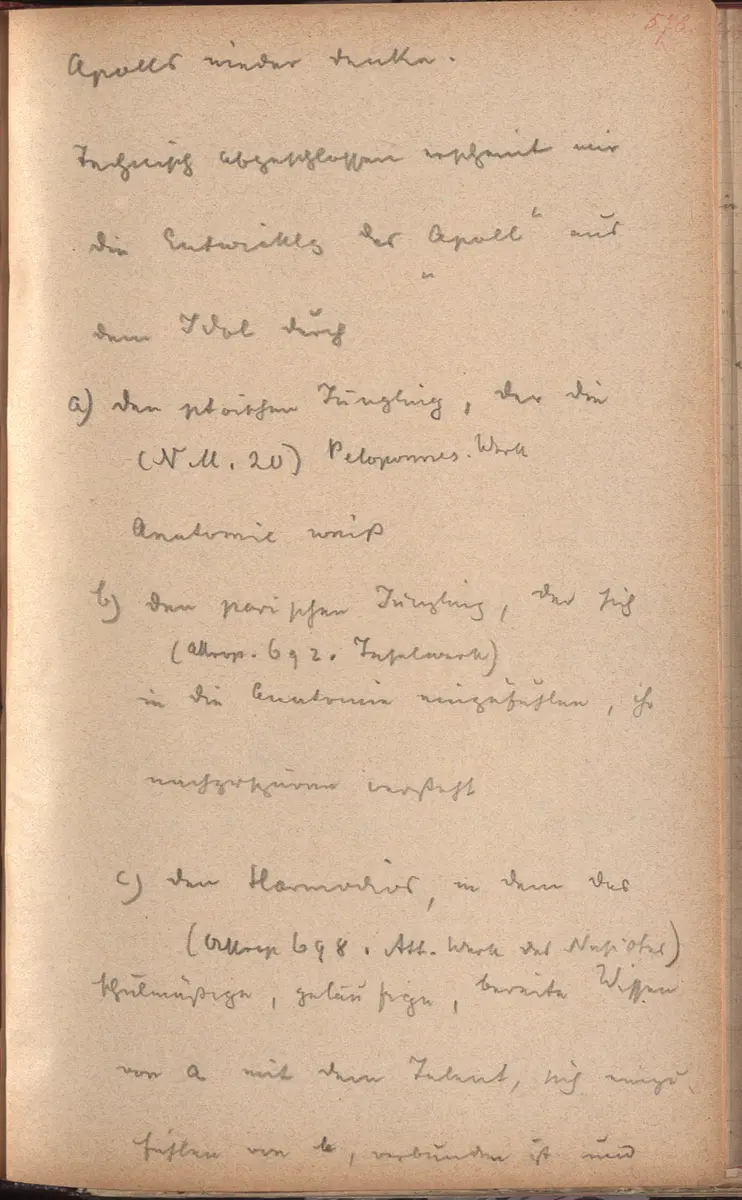 578.
Apolls wieder denke.
Technisch abgeschlossen erscheint mir
die Entwicklg des „Apoll“ aus
dem Idol durch
a) den ptoischen Jüngling, der die
(N M. 20) Peloponnes. Werk
Anatomie weiß
b) den parischen Jüngling, der sich
(Akrop. 692. Inselwerk)
in die Anatomie einzufühlen, ihr
nachzuspüren versteht
c) den Harmodios, in dem das
(Akrop 698. Att. Werk des Nesiotes)
schulmäßige, geläufige, bereite Wissen
von a mit dem Talent, sich einzu-
fühlen von b, verbunden ist und